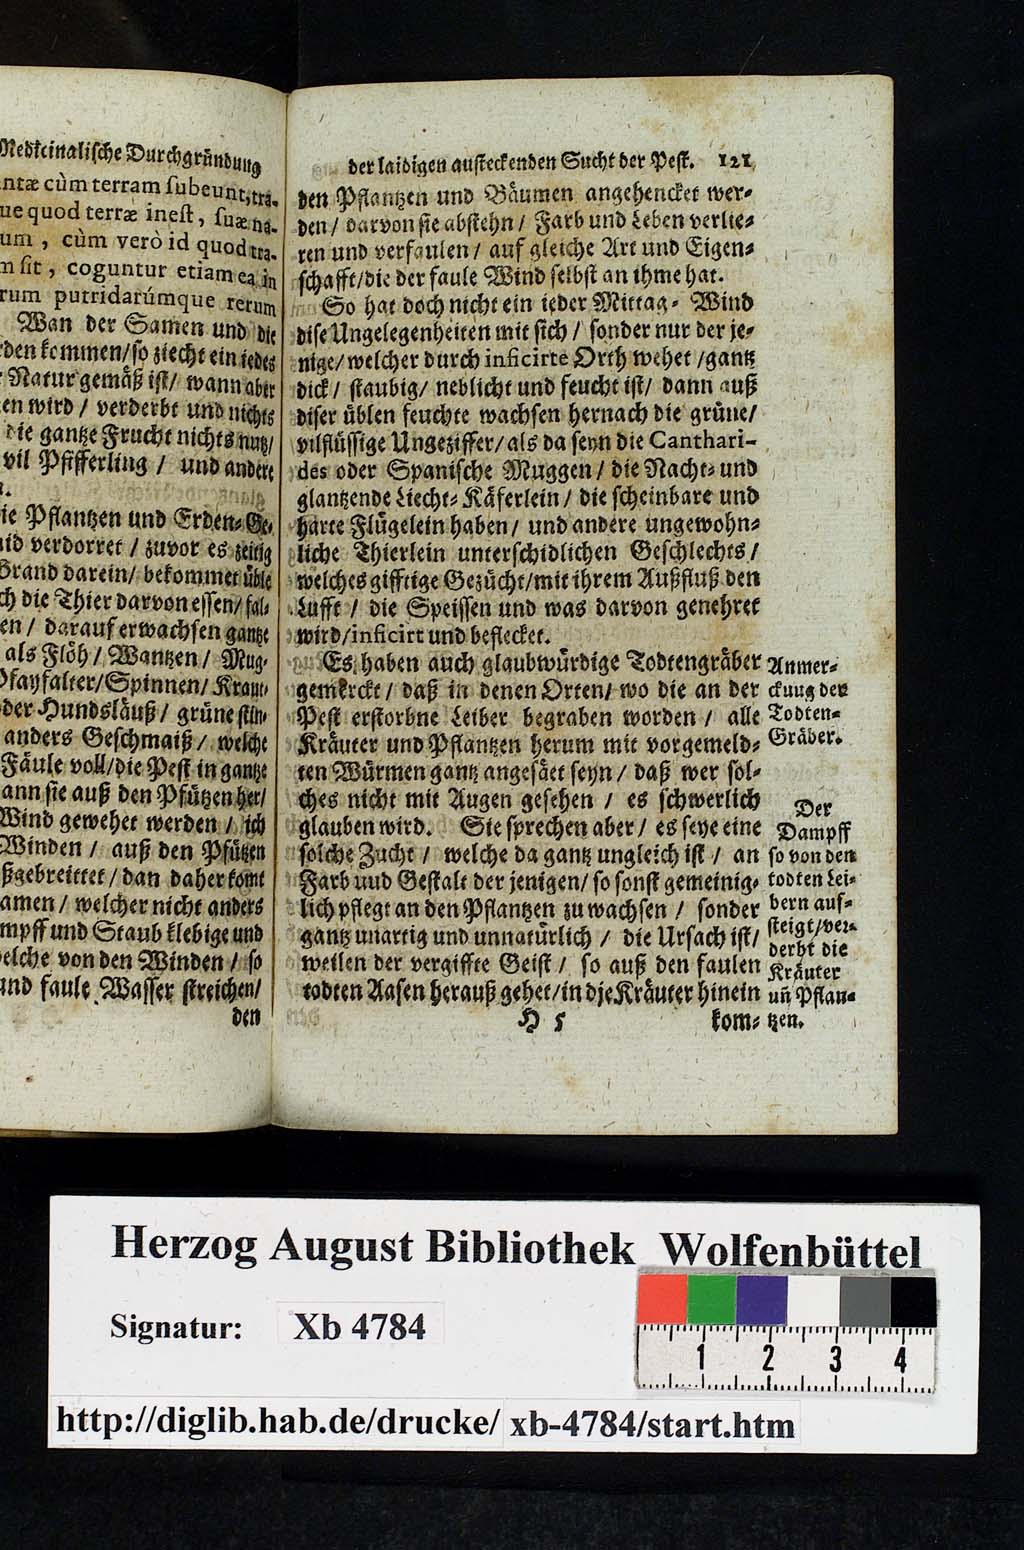 Medicinalische Durchgründung
ntæ cùm terram subeunt, tra-
ue quod terræ inest, suæ na-
um, cùm verò id quod tra-
m sit, coguntur etiam ea in
rum putridarúmque rerum
Wan der Samen und die
den kommen/ so ziecht ein iedes
Natur gemäß ist/ wann aber
en wird / verderbt und nichts
die gantze Frucht nichts nutz/
vil Pfifferling / und andere
n.
ie Pflantzen und Erden-Ge-
id verdorret / zuvor es zeitig
Brand darein/ bekommet üble
ch die Thier darvon essen/ fal-
en / darauf erwachsen gantze
als Flöh/ Wantzen/ Mug-
Pfayfalter/ Spinnen/ Kraut-
der Hundsläuß/ grüne stin-
anders Geschmaiß/ welche
Fäule voll/ die Pest in gantze
ann sie auß den Pfützen her/
Wind gewehet werden / ich
Winden / auß den Pfützen
ßgebreittet / dan daher komt
amen / welcher nicht anders
mpff und Staub klebige und
elche von den Winden / so
und faule Wasser streichen/
den
der laidigen austeckenden Sucht der Pest. 121
den Pflantzen und Bäumen angehencket wer-
den/ darvon sie abstehn/ Farb und Leben verlie-
ren und verfaulen/ auf gleiche Art und Eigen-
schafft/ die der faule Wind selbst an ihme hat.
So hat doch nicht ein ieder Mittag- Wind
dise Ungelegenheiten mit sich/ sonder nur der je-
nige/ welcher durch inficirte Orth wehet / gantz
dick/ staubig/ neblicht und feucht ist/ dann auß
diser üblen feuchte wachsen hernach die grüne/
vilflüssige Ungeziffer/ als da seyn die Canthari-
des oder Spanische Muggen/ die Nacht- und
glantzende Liecht- Käferlein/ die scheinbare und
harte Flügelein haben/ und andere ungewohn-
liche Thierlein unterschidlichen Geschlechts/
welches gifftige Gezücht/ mit ihrem Außfluß den
Lufft / die Speissen und was darvon genehret
wird/ inficirt und beflecket.
Es haben auch glaubwürdige Todtengräber
gemerckt/ daß in denen Orten/ wo die an der
Pest erstorbne Leiber begraben worden / alle
Kräuter und Pflantzen herum mit vorgemeld-
ten Würmen gantz angesäet seyn/ daß wer sol-
ches nicht mit Augen gesehen / es schwerlich
glauben wird. Sie sprechen aber/ es seye eine
solche Zucht / welche da gantz ungleich ist / an
Farb und Gestalt der jenigen/ so sonst gemeinig-
lich pflegt an den Pflantzen zu wachsen / sonder
gantz unartig und unnatürlich / die Ursach ist/
weilen der vergiffte Geist / so auß den faulen
todten Aasen herauß gehet/ in die Kräuter hinein
H 5 kom-
Anmer-
ckung der
Todten-
Gräber.
Der
Dampff
so von den
todten Lei-
bern auf-
steigt/ ver-
derbt die
Kräuter
uñ Pflan-
tzen.
Herzog August Bibliothek Wolfenbüttel
Signatur: Xb 4784
1 2 3 4
http://diglib.hab.de/drucke/ xb-4784/start.htm